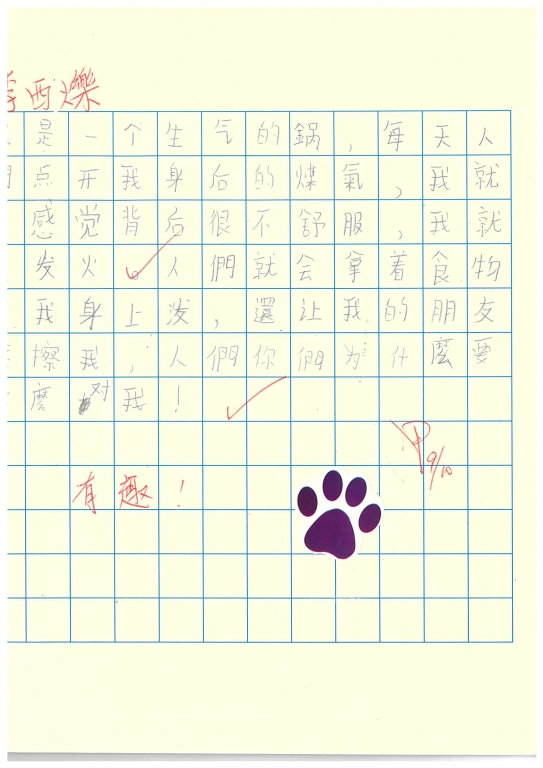 西爍
是一个生气的鍋，每天人
点开我身后的煤氣，我就
感觉背后很不舒服，我就
发火。人們就会拿着食物
我身上泼，還让我的朋友
擦我，人們你們为什麼要
麼对我！
9/10
有趣！